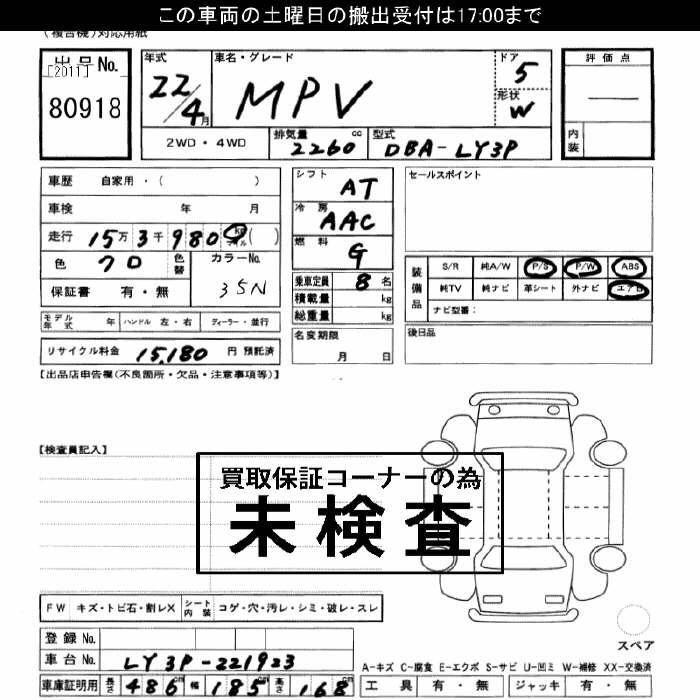 この車両の土曜日の搬出受付は17:00まで
(複合機)対応用紙
出品No.
[2011]
80918
年式
22/4月
車名・グレード
MPV
ドア
5
形状
W
評価点
—
内装
2WD・4WD
排気量 2260 cc
型式 DBA-LY3P
車歴 自家用・( )
車検 年 月
走行 15万3千980 km マイル ( )
色 クロ 色替 カラーNo. 35N
保証書 有・無
モデル年式 年 ハンドル 左・右 ディーラー・並行
リサイクル料金 15,180 円 預託済
シフト AT
冷房 AAC
燃料 G
乗車定員 8 名
積載量 kg
総重量 kg
名変期限
月 日
セールスポイント
装備品
S/R 純A/W P/S P/W ABS
純TV 純ナビ 革シート 外ナビ エアB
ナビ型番:
後日品
【出品店申告欄(不良箇所・欠品・注意事項等)】
【検査員記入】
買取保証コーナーの為
未検査
FW キズ・トビ石・割レX シート内装 コゲ・穴・汚レ・シミ・破レ・スレ
登録No.
車台No. LY3P-221923
車庫証明用 長さ 486 cm 幅 185 cm 高さ 168 cm
スペア
A-キズ C-腐食 E-エクボ S-サビ U-凹ミ W-補修 XX-交換済
工具 有・無 ジャッキ 有・無